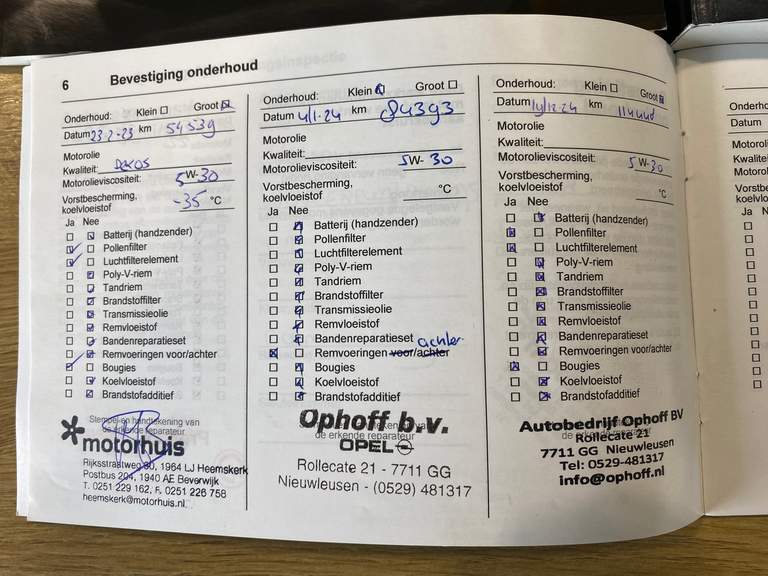 6 Bevestiging onderhoud
Onderhoud: Klein Groot
Datum 23-2-23 km 54539
Motorolie
Kwaliteit: Dexos
Motorolieviscositeit: 5W-30
Vorstbescherming,
koelvloeistof -35 °C
Ja Nee
Batterij (handzender)
Pollenfilter
Luchtfilterelement
Poly-V-riem
Tandriem
Brandstoffilter
Transmissieolie
Remvloeistof
Bandenreparatieset
Remvoeringen voor/achter
Bougies
Koelvloeistof
Brandstofadditief
Stempel en handtekening van
de erkende reparateur
motorhuis
Rijksstraatweg 80, 1964 LJ Heemskerk
Postbus 204, 1940 AE Beverwijk
T. 0251 229 162, F. 0251 226 758
heemskerk@motorhuis.nl
Onderhoud: Klein Groot
Datum 4/1-24 km 84393
Motorolie
Kwaliteit:
Motorolieviscositeit: 5W-30
Vorstbescherming,
koelvloeistof °C
Ja Nee
Batterij (handzender)
Pollenfilter
Luchtfilterelement
Poly-V-riem
Tandriem
Brandstoffilter
Transmissieolie
Remvloeistof
Bandenreparatieset
achter
Remvoeringen voor/achter
Bougies
Koelvloeistof
Brandstofadditief
Ophoff b.v.
de erkende reparateur
OPEL
Rollecate 21 - 7711 GG
Nieuwleusen - (0529) 481317
Onderhoud: Klein Groot
Datum km
Motorolie
Kwaliteit:
Motorolieviscositeit: 5W-30
Vorstbescherming,
koelvloeistof °C
Ja Nee
Batterij (handzender)
Pollenfilter
Luchtfilterelement
Poly-V-riem
Tandriem
Brandstoffilter
Transmissieolie
Remvloeistof
Bandenreparatieset
Remvoeringen voor/achter
Bougies
Koelvloeistof
Brandstofadditief
Autobedrijf Ophoff BV
Rollecate 21
7711 GG Nieuwleusen
Tel: 0529-481317
info@ophoff.nl
Datum
Ja